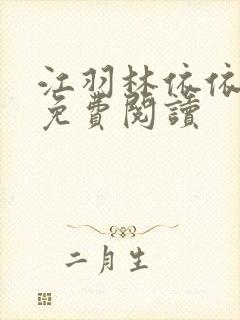 江羽林依依
免費閱讀
二月生